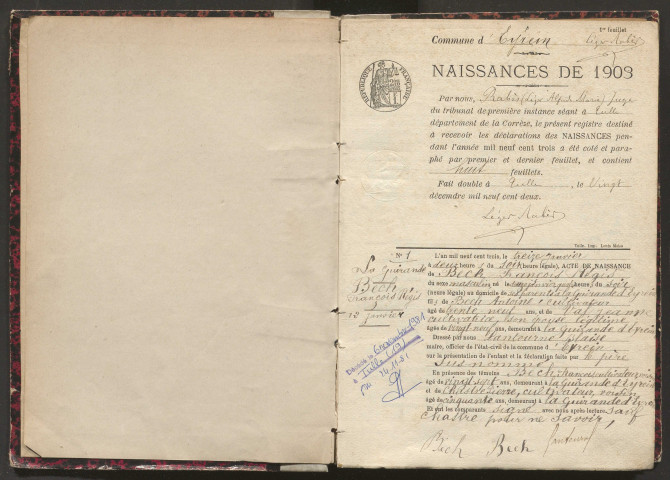 1er feuillet
Commune d'Eyrein
Léger Rabès
RÉPUBLIQUE FRANÇAISE
NAISSANCES DE 1903
Par nous, Rabès Léger Alfred Marie, Juge
du tribunal de première instance séant à Tulle
département de la Corrèze, le présent registre destiné
à recevoir les déclarations des NAISSANCES pen-
dant l'année mil neuf cent trois a été coté et para-
phé par premier et dernier feuillet, et contient
huit feuillets.
Fait double à Tulle, le Vingt
décembre mil neuf cent deux.
Léger Rabès
Tulle, Imp. Louis
N° 1
La Guirande
Bech
François Régis
13 janvier
Décédé le 6 novembre 1981
à Tulle (19)
24.11.81
L'an mil neuf cent trois, le treize janvier
à deux heures du soir (heure légale), ACTE DE NAISSANCE
de Bech François Régis
du sexe masculin né le heures du soir
(heure légale) au domicile de ses parents à la Guirande d'Eyrein
fils de Bech Antoine cultivateur
âgé de trente neuf ans, et de
cultivatrice, son épouse légitime
âgée de vingt neuf ans, demeurant à la Guirande d'Eyrein
Dressé par nous
maire, officier de l'état-civil de la commune d'Eyrein
sur la présentation de l'enfant et la déclaration faite par le père
sus nommé
En présence des témoins Bech François
âgé de vingt sept ans, demeurant à la Guirande d'Eyrein
et Chastre Pierre, cultivateur, voisin
âgé de cinquante ans, demeurant à la Guirande d'Eyrein
Et ont les comparants signé avec nous après lecture. Sauf
Chastre pour ne savoir,
Bech Bech